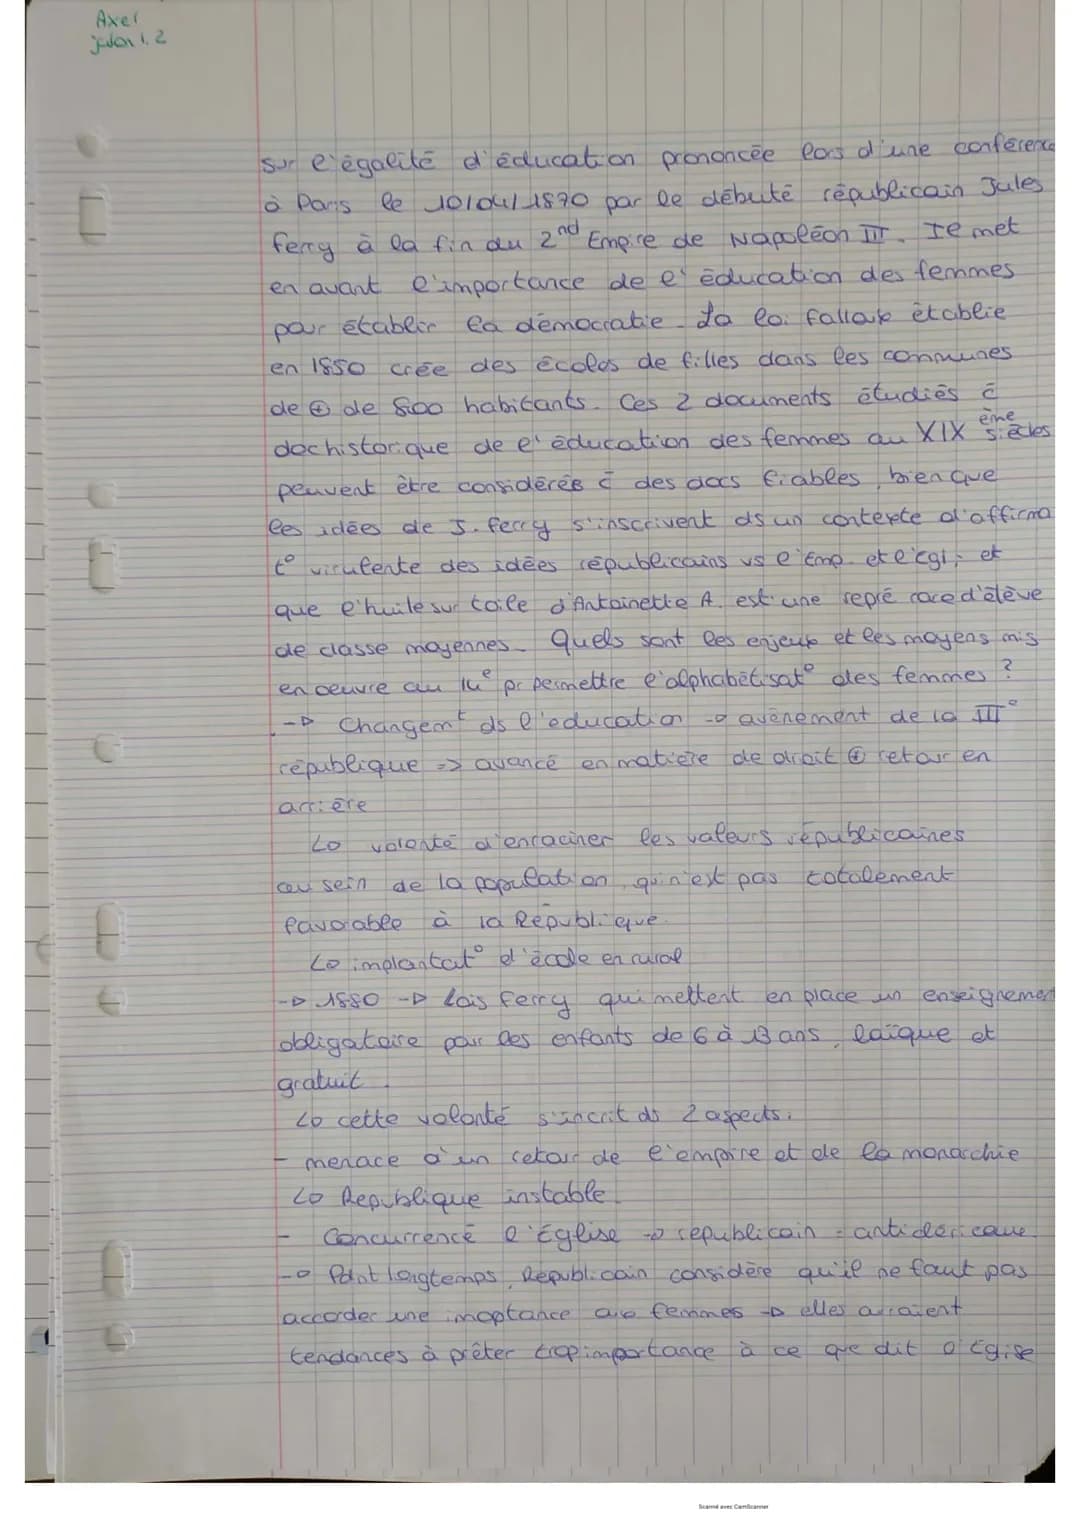 Axel
sur l'égalité d'éducation prononcée lors d'une conférence
à Paris le 10/04/1870 par le débuté républicain Jules
ferry à la fin du 2nd Empire de Napoléon III. Il met
en avant l'importance de l'éducation des femmes
pour établir la démocratie. La loi falloux établie
en 1850 crée des écoles de filles dans les communes
de ⊕ de 800 habitants. Ces 2 documents étudiés c̄
doc historique de l'éducation des femmes au XIX ème siècles
peuvent être considérés c̄ des docs fiables, bien que
les idées de J. ferry s'inscrivent ds un contexte d'affirma
t° virulente des idées républicains vs l'Emp. et l'egl; et
que l'huile sur toile d'Antoinette A. est une repré rare d'élève
de classe moyennes. Quels sont les enjeux et les moyens mis
en oeuvre au pr permettre l'alphabétisat° des femmes ?
-> Changemt ds l'éducation -> avènement de la III°
république => avancé en matière de droit ⊕ retour en
arrière
Lo volonté d'enraciner les valeurs républicaines
au sein de la population qui n'est pas totalement
favorable à la République.
Lo implantat° d'école en rural
-> 1880 -> Lois ferry qui mettent en place un enseignement
obligatoire pour les enfants de 6 à 13 ans, laïque et
gratuit.
Lo cette volonté s'incrit ds 2 aspects:
- menace d'un retour de l'empire et de la monarchie
Lo République instable.
- Concurrencé l'Église -> républicain = anticléricaux
-> Pdnt longtemps, Républicain considère qu'il ne faut pas
accorder une imoptance aux femmes -> elles auraient
tendances à prêter trop importance à ce que dit l'Égise
Scanné avec CamScanner